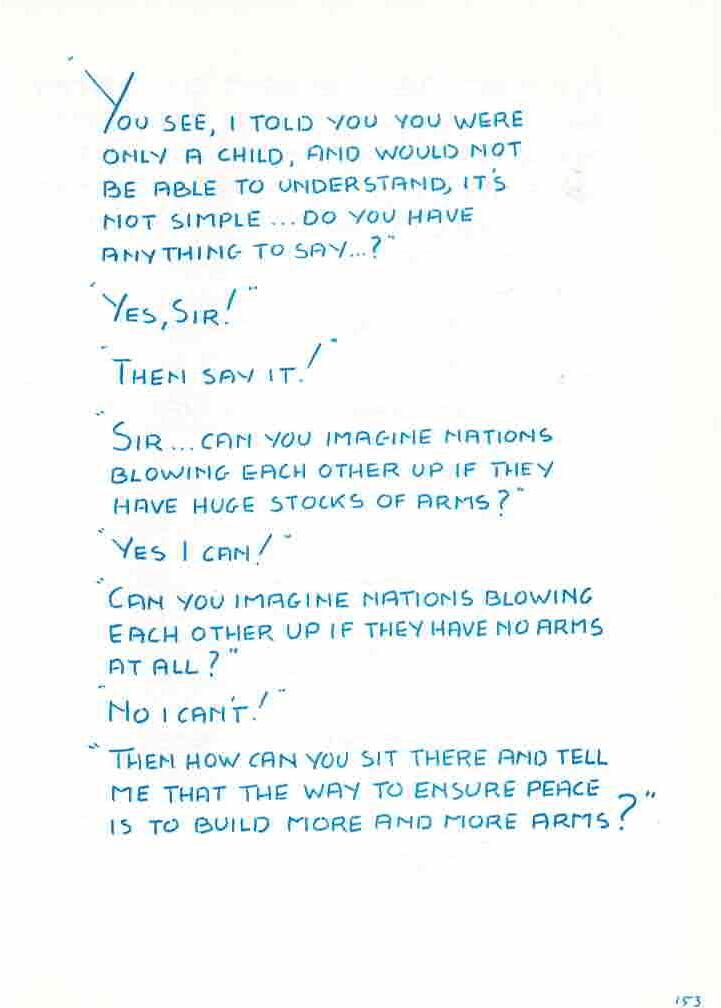 "YOU SEE, I TOLD YOU YOU WERE
ONLY A CHILD, AND WOULD NOT
BE ABLE TO UNDERSTAND, IT'S
NOT SIMPLE ... DO YOU HAVE
ANYTHING TO SAY...?"
"YES, SIR!"
"THEN SAY IT!"
"SIR ... CAN YOU IMAGINE NATIONS
BLOWING EACH OTHER UP IF THEY
HAVE HUGE STOCKS OF ARMS?"
"YES I CAN!"
"CAN YOU IMAGINE NATIONS BLOWING
EACH OTHER UP IF THEY HAVE NO ARMS
AT ALL?"
"NO I CAN'T!"
"THEN HOW CAN YOU SIT THERE AND TELL
ME THAT THE WAY TO ENSURE PEACE
IS TO BUILD MORE AND MORE ARMS?"
153